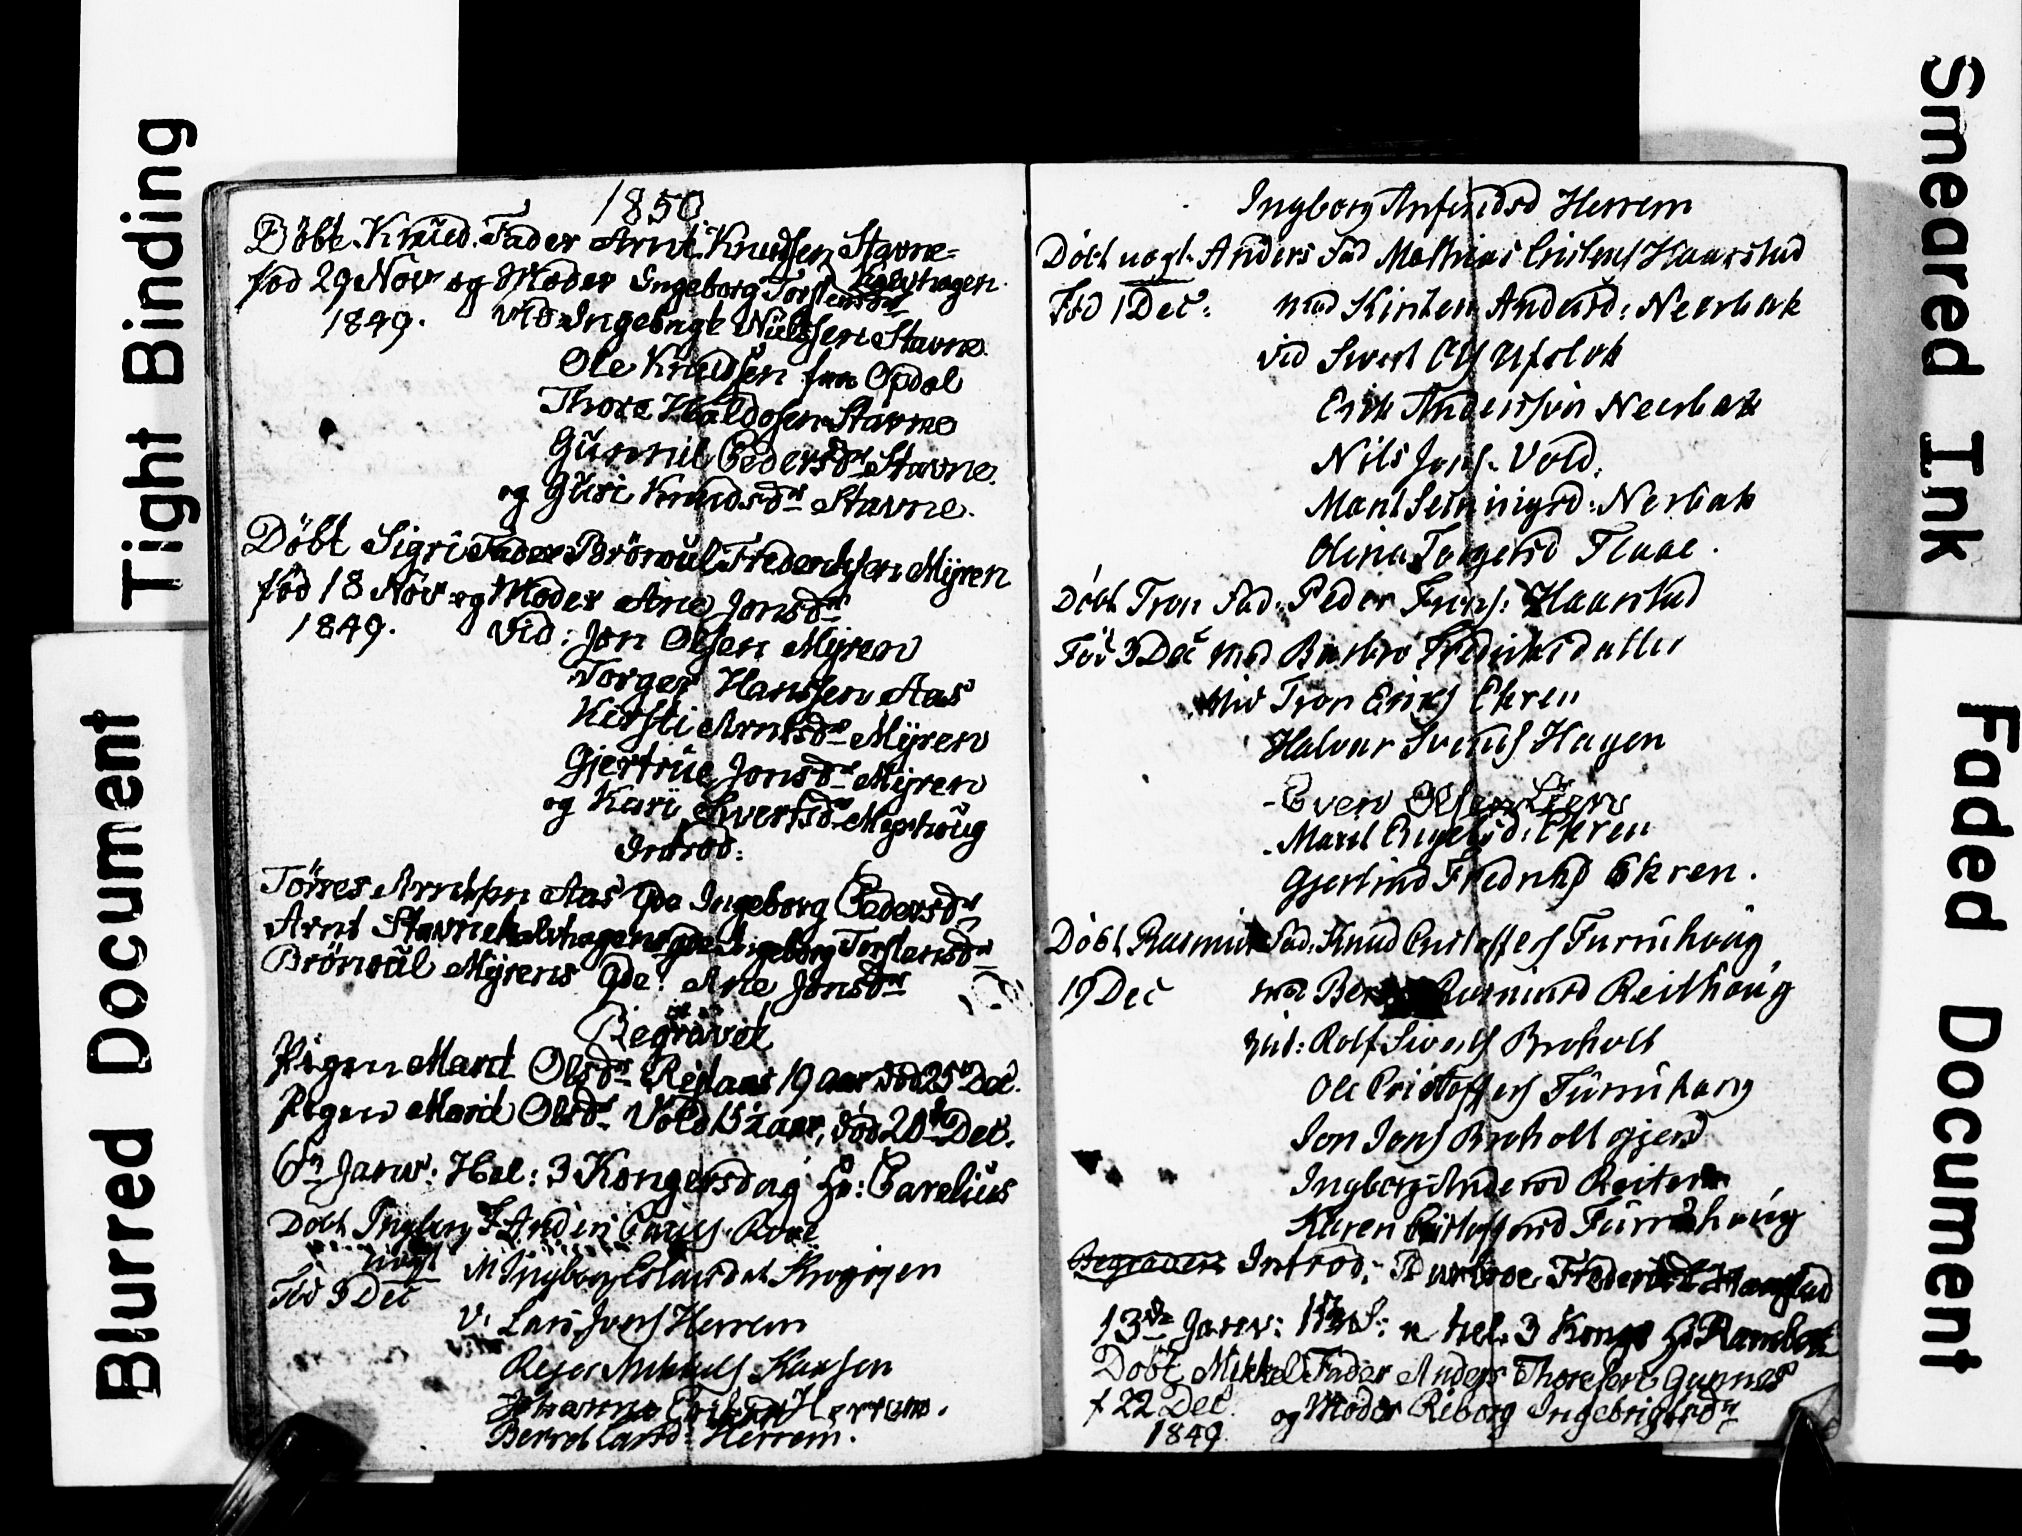 Tight Binding
Blurred Document
Smeared Ink
Faded Document
1850
Döbt. Knud. Fader Arnt Knudsen Stavne-
kalvhagen
fød 29 Nov og Moder Ingeborg Torstensdr
1849. Vid. Ingebrigt Nielsen Stavne
Ole Knudsen fra Opdal
Thore Haldosen Stavne
Gunnil Pedersdr Stavne.
og Guri Knudsdr Stavne.
Döbt Sigri Fader Brönoul Frederiksen Myren
fød 18 Nov og Moder Ane Jonsdr
1849. Vid: Jon Olsen Myren
Torger Hanssen Aas
Kersti Arntsdr Myren
Gjertrue Jonsdr Myren
og Kari Sivertsdr Myrhoug
Introd:
Törres Arntsen Aas Qde Ingeborg Pedersdr
Arnt Stavnekalvhagens Qde Ingeborg Torstensdr
Brönoul Myrens Qde: Ane Jonsdr
Begravet
Pigen Marit Olsdr 19 aar død 25 Dec.
Pigen Marit Olsdr Vold 15½ aar, død 20de Dec.
6te Janv: Hel: 3 Kongersdag Hr: Parelius
Döbt Ingborg F. Anders
uægt
Fød 3 Dec M Ingborg
V. Lars Ivers Herrem
Mikkels
Johanna Herrem.
Berrol Larsd: Herrem.
Ingborg Anfindsd Herrem
Döbt uægt. Anders Fad Mathias Cristens Haarstad
Fød 1 Dec: mod Kirsten Andersd: Neerbak
vid Sivert Ols
Erik Anderssön Neerbak
Nils Jons. Vold.
Marit Nerbak
Olina Torgersd Flaae.
Döbt Tron Fad. Peder Trons: Haarstad
Fød 3 Dec mod Barbro Fredriksdatter
Vid Tron Eriks Ekren
Halvar Svends Hagen
- Even Olsen Lien
- Marit Engelsd: Ekren
Gjertrud Fredriksd Ekren.
Döbt Rasmus Fad. Knud Cristoffers Furruhaug
19 Dec mod Rasmusd Reithaug
vid: Rolf Siverts Broholt
Ole Cristoffers Furruhaug
Jon Jons Broholt gjerd
Ingborg Andersd Reiten
Karen Cristoffersd Furruhaug
Begraven Introd: Barbroe Frederiksd Haarstad
13de Janv: 1te S: e hel. 3 Konge Hr
Döbt Mikkel Fader Anders Thoresen Gunnes
f 22 Dec. og Moder Reborg Ingebrigtsdr
1849